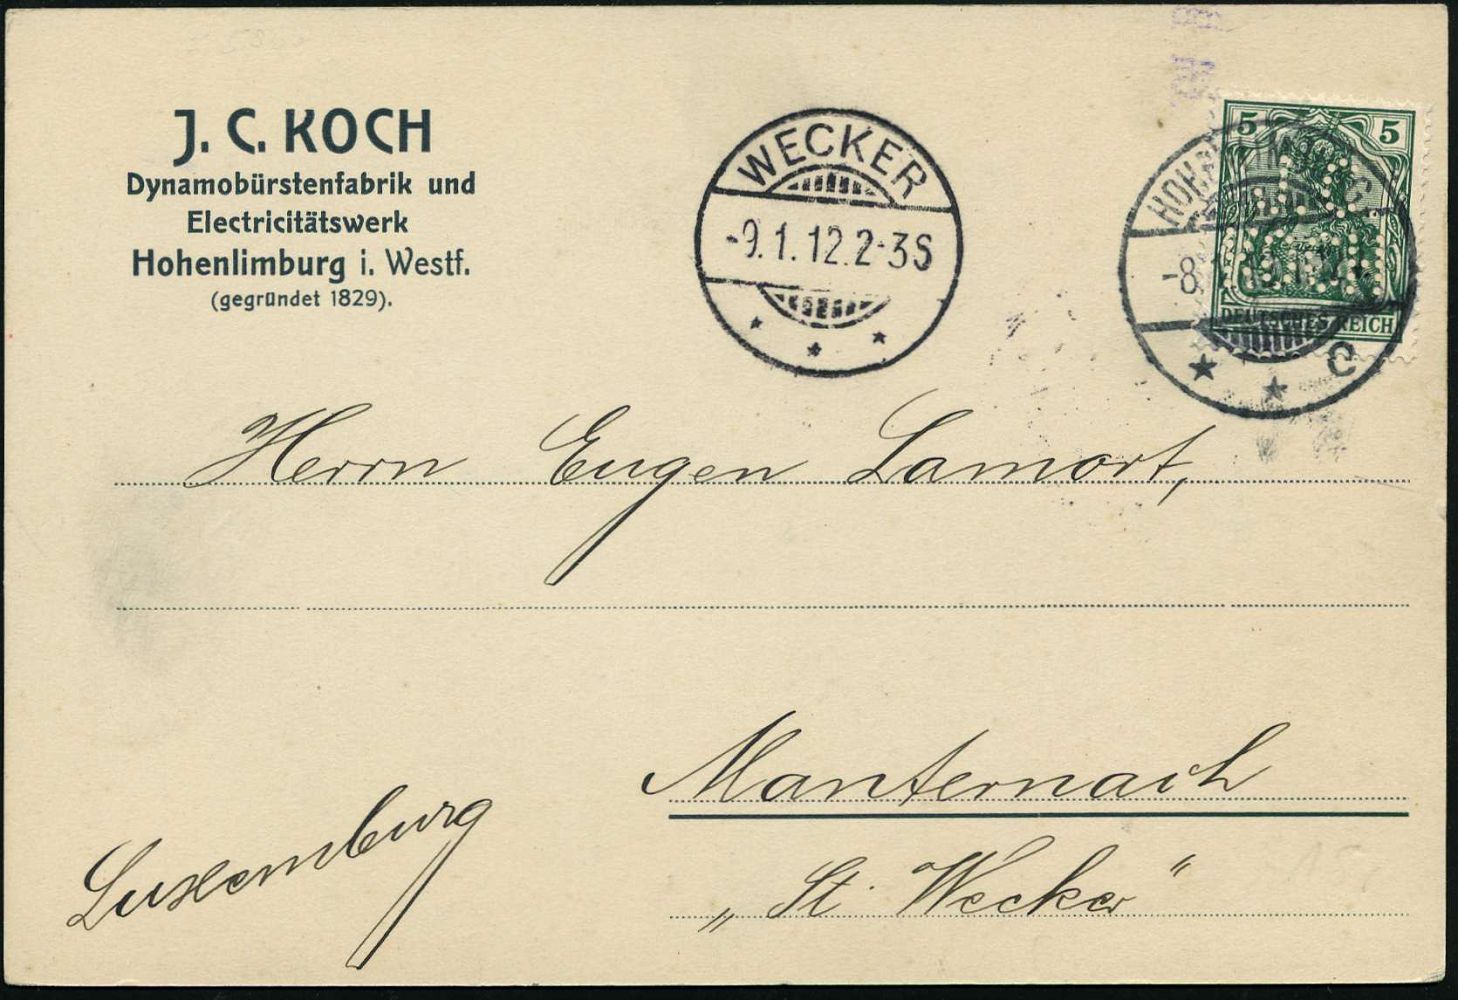 J. C. KOCH
Dynamobürstenfabrik und
Electricitätswerk
Hohenlimburg i. Westf.
(gegründet 1829).
WECKER
-9.1.12.2-3S
5 5
DEUTSCHES REICH
HOHENLIMBURG
-8.
* * C
Herrn Eugen Lamort,
Manternach
„St. Wecker“
Luxemburg